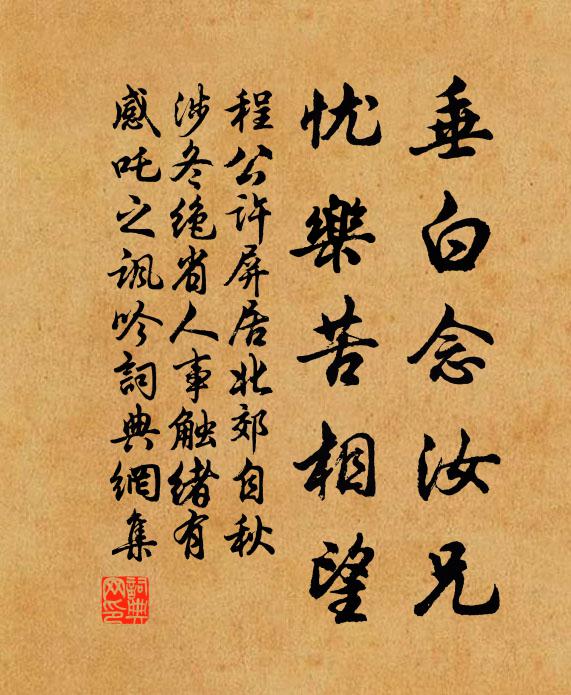 垂白念汝兄
忧樂苦相望
程公許屏居北郊自秋
涉冬绝省人事触绪有
感吒之諷吟詞典網集
詞典
网印